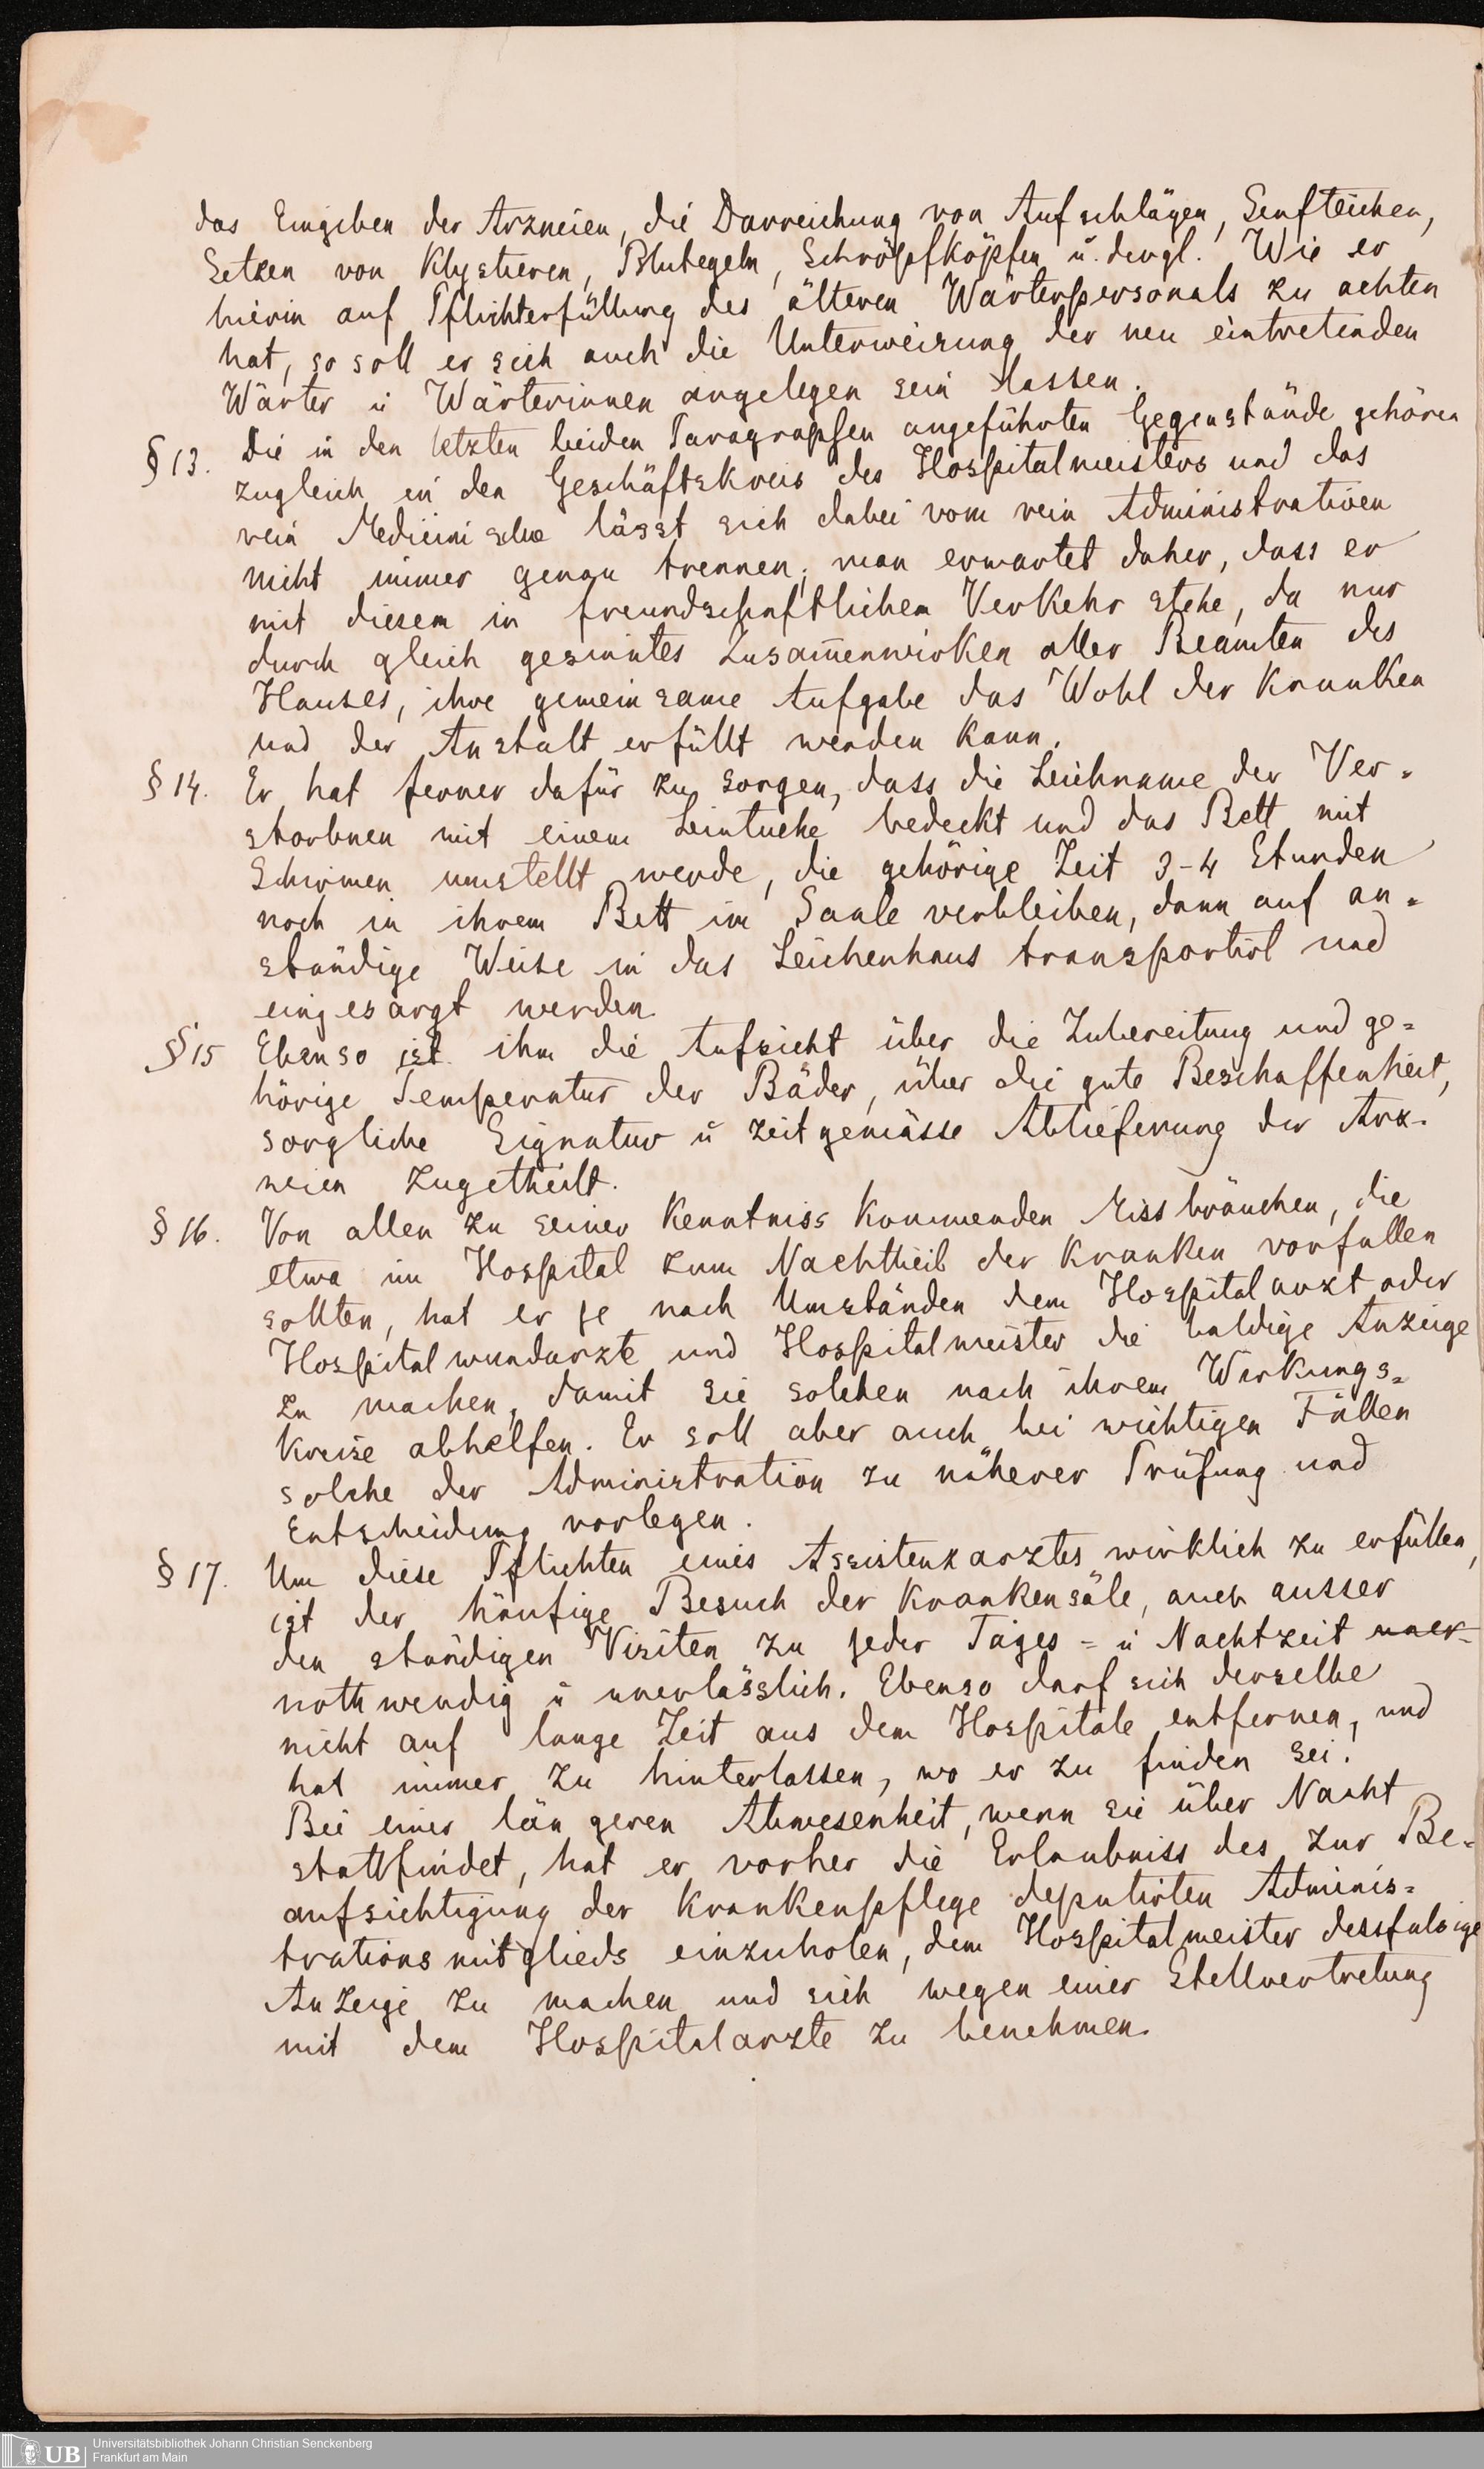 das Eingeben der Arzneien, die Darreichung von Aufschlägen, Senfteichen,
Setzen von Klystieren, Blutegeln, Schröpfköpfen u. dergl. Wie er
hierin auf Pflichterfüllung des älteren Wärterpersonals zu achten
hat, so soll er sich auch die Unterweisung der neu eintretenden
Wärter u Wärterinnen angelegen sein lassen.
§ 13. Die in den letzten beiden Paragraphen angeführten Gegenstände gehören
zugleich in den Geschäftskreis des Hospitalmeisters und das
rein Medicinische lässt sich dabei vom rein Administrativen
nicht immer genau trennen; man erwartet daher, dass er
mit diesem in freundschaftlichem Verkehr stehe, da nur
durch gleich gesinntes Zusam̄enwirken aller Beamten des
Hauses, ihre gemeinsame Aufgabe das Wohl der Kranken
und der Anstalt erfüllt werden kann.
§ 14. Er hat ferner dafür zu sorgen, dass die Leichname der Ver=
storbnen mit einem Leintuche bedeckt und das Bett mit
Schirmen umstellt werde, die gehörige Zeit 3-4 Stunden
noch in ihrem Bett im Saale verbleiben, dann auf an=
ständige Weise in das Leichenhaus transportirt und
eingesargt werden.
§ 15 Ebenso ist ihm die Aufsicht über die Zubereitung und ge=
hörige Temperatur der Bäder, über die gute Beschaffenheit,
sorgliche Signatur u zeitgemässe Ablieferung der Arz-
neien zugetheilt.
§ 16. Von allen zu seiner Kenntniss kommenden Missbräuchen, die
etwa im Hospital zum Nachtheil der Kranken vorfallen
sollten, hat er je nach Umständen dem Hospitalarzt oder
Hospitalwundarzte und Hospitalmeister die baldige Anzeige
zu machen, damit sie solchen nach ihrem Wirkungs=
kreise abhelfen. Er soll aber auch bei wichtigen Fällen
solche der Administration zu näherer Prüfung und
Entscheidung vorlegen.
§ 17. Um diese Pflichten eines Assistenzarztes wirklich zu erfüllen,
ist der häufige Besuch der Krankensäle, auch ausser
den ständigen Visiten zu jeder Tages= u Nachtzeit uner-
nothwendig u unerlässlich. Ebenso darf sich derselbe
nicht auf lange Zeit aus dem Hospitale entfernen, und
hat immer zu hinterlassen, wo er zu finden sei.
Bei einer längeren Abwesenheit, wenn sie über Nacht
stattfindet, hat er vorher die Erlaubniss des zur Be=
aufsichtigung der Krankenpflege deputirten Adminis=
trationsmitglieds einzuholen, dem Hospitalmeister dessfalsige
Anzeige zu machen und sich wegen einer Stellvertretung
mit dem Hospitalarzte zu benehmen.
UB Universitätsbibliothek Johann Christian Senckenberg
Frankfurt am Main